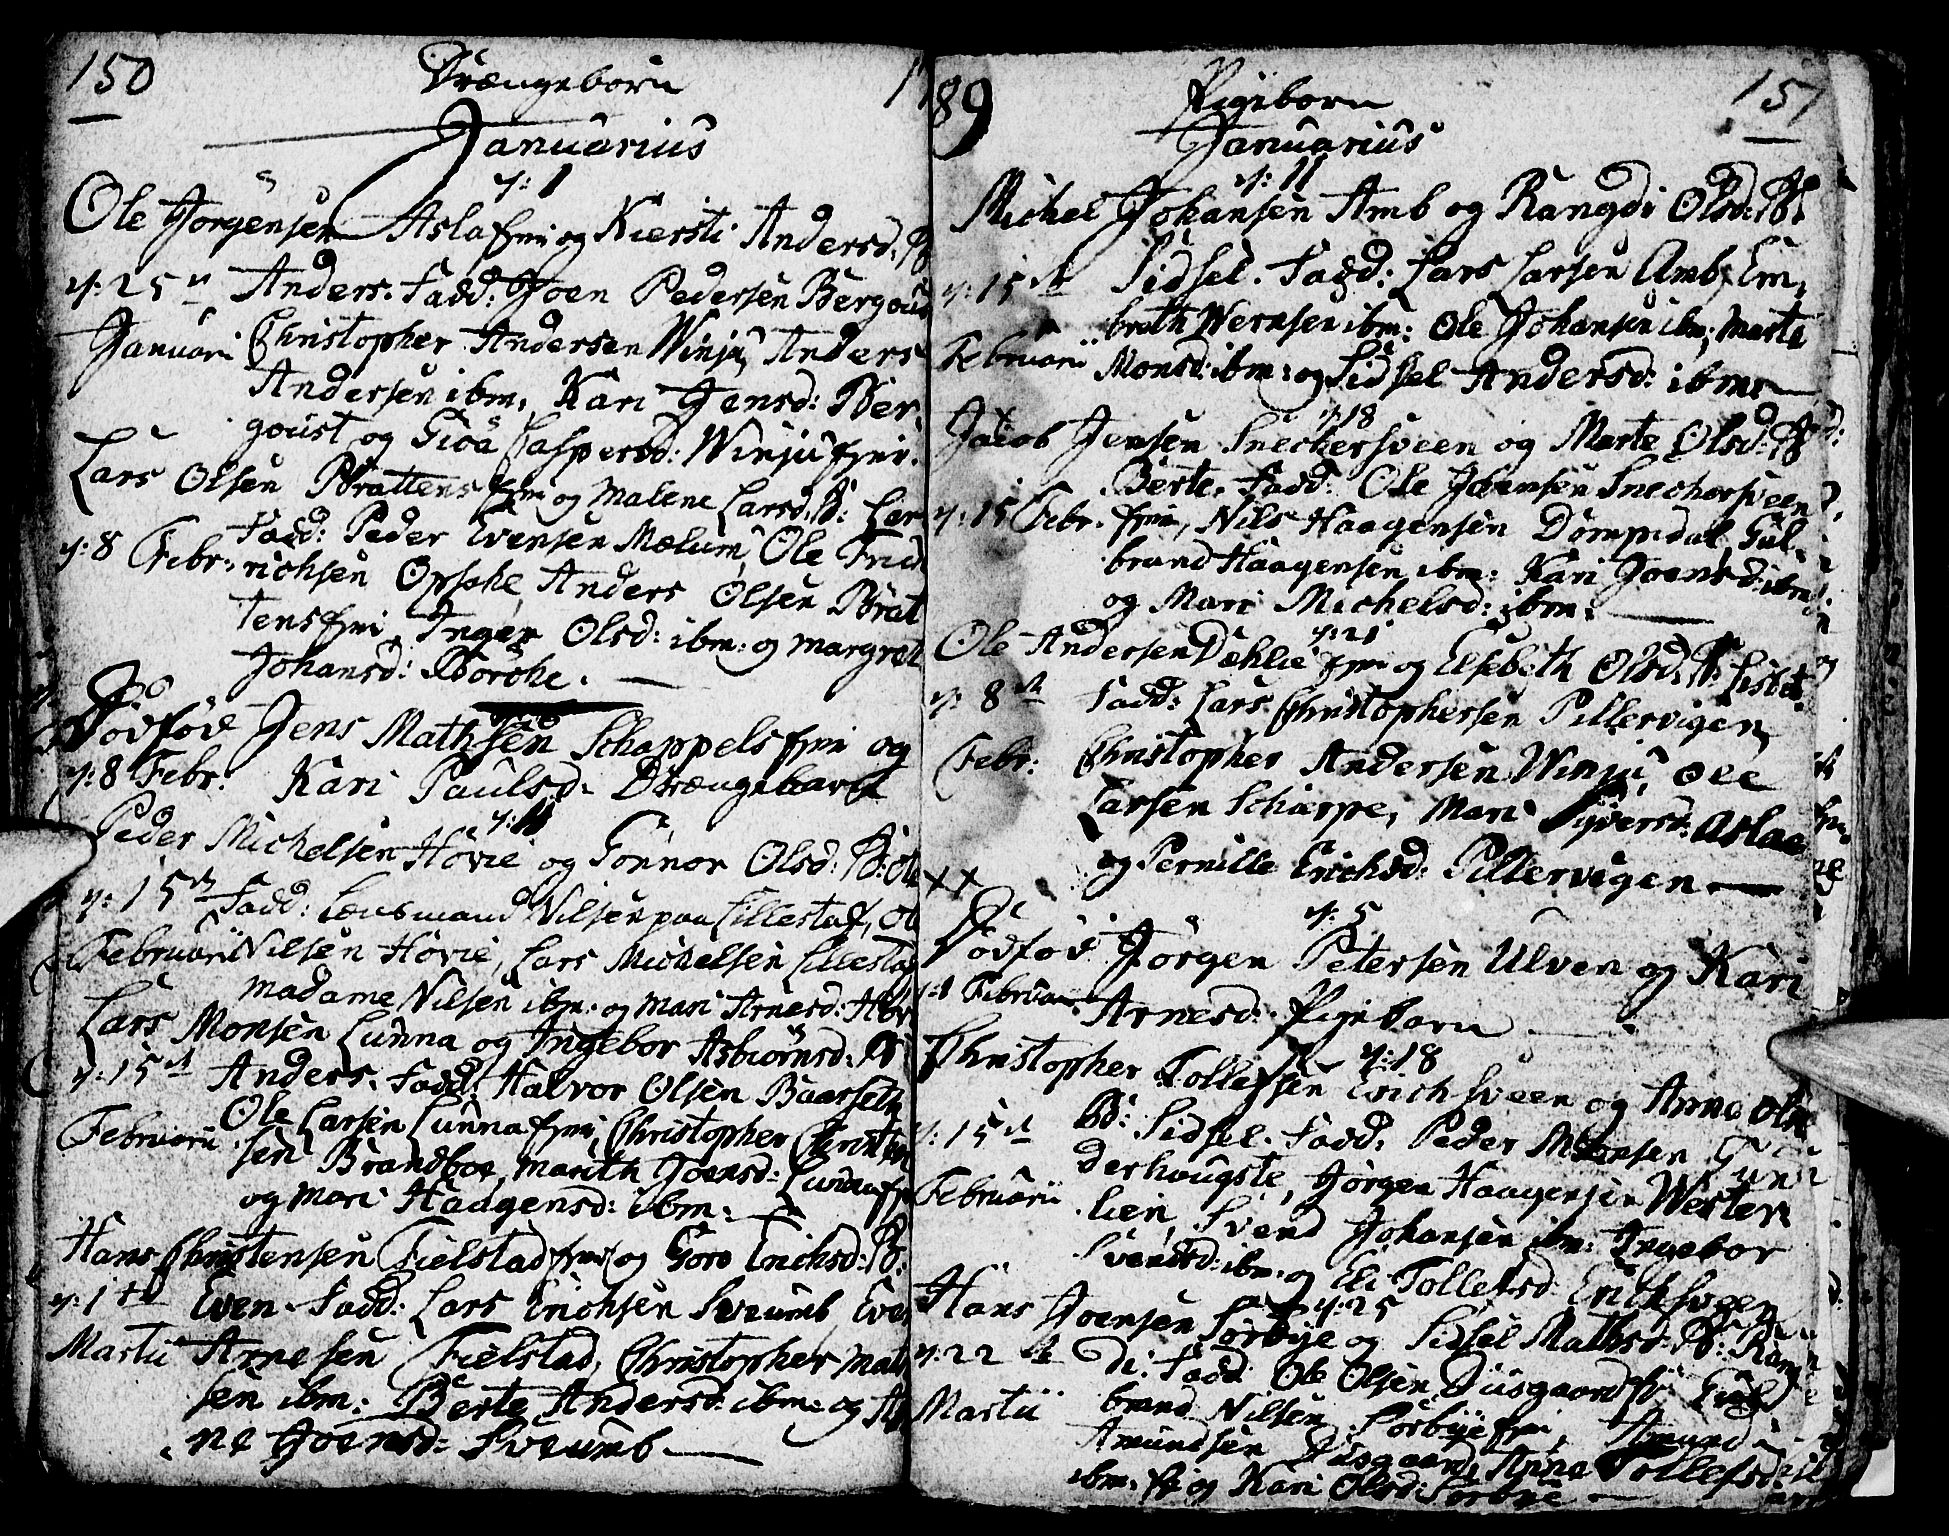 150
Drængebørn
17
Januarius
d: 1
Ole Jørgensen Aslafni og Kiersti Andersd: B
d: 25 n Anders. Fadd: Joen Pedersen Bergoús
Januari Christopher Andersen Winjú, Anders
Andersen ibm, Kari Jensd: Ber-
goúst og Giöa Caspersd: Winjú fni.
Lars Olsen Brattens fni og Malene Larsd: B: Lar
Fadd: Peder Evensen Mælum, Ole Frid
d: 8 Febr: richsen Opsahe, Anders Olsen Brat
tens fni, Inger Olsd: ibm: og Margret
Johansd: Børche.
Dødfød Jens Mathsen Schappels fni og
d: 8 Febr. Kari Paulsd. Drængebarn
d: 11
Peder Michelsen Høvie og Gonnor Olsd: B: Ole
d: 15 Fadd: Lensmand Nilsen paa Lillestaf, Ole
Februarii Nilsen Høvie, Lars Michelsen Lillestaf
Madame Nilsen ibm: og Mari Arnesd: Høv
Lars Monsen Lunna og Ingebor Asbiørnsd: B
d: 15 Anders. Fadd: Halvor Olsen Baarseth
Ole Larsen Lunna fni, Christopher Christen
Februarii sen Brandboe, Marith Joensd: Lunna fni
og Mari Haagensd: ibm.
Hans Christensen Fielstad fni og Goro Erichsd: B:
d: 1 Even. Fadd: Lars Erichsen Sveumb, Even
Martii Arnesen Fielstad, Christopher Mat
sen ibm: Berte Andersd: ibm: og An
ne Joensd: Sveumb.
89
Pigebørn
151
Januarius
d: 11
Michel Johansen Amb og Rangdi Olsd: B:
d: 15 Sidsel. Fadd: Lars Larsen Amb, Em-
brath Wernsen ibm: Ole Johansen ibm, Marte
Februarii Monsd: ibm: og Sidsel Andersd: ibm:
d: 18
Jacob Jensen Sneckersveen og Marte Olsd: B
Berte. Fadd: Ole Johansen Sneckersveen
d: 15 Febr. fni, Nils Haagensen Dompidal, Gul-
brand Haagensen ibm: Kari Joensd: ibm
og Mari Michelsd: ibm:
d: 21
Ole Andersen Dæhlie fni og Elsebeth Olsd: B: Lisbet.
d: 8 Fadd: Lars Christophersen Pillervigen
Febr: Christopher Andersen Winjú, Ole
Larsen Schiærpe, Mari Syversd: Aslae
og Pernille Erichsd: Pillervigen
xx
d: 5
Dødfød Jörgen Petersen Ulven og Kari
d: 1 Februar Arnesd: Pigeborn
d: 18
Christopher Tollefsen Erichsveen og Anne Ols
d: 15 Bd: Sidsel. Fadd: Peder Monsen Tun
derhaugste, Jörgen Haagensen Wester-
Februarii lien, Svend Johansen ibm: Ingebor
Svendsd: ibm: og Eli Tollefsd: Erichsveen
d: 25
Hans Joensen Sørbye og Sidsel Mathsd: B: Rang
d: 22 di: Fadd: Ole Olsen Diisgaard fv: Gul
Martii brand Nilsen Sørbye fni, Amund
Amundsen Diisgaard, Anne Tollefsd:
ibm: fv og Kari Olsd: Sørbye